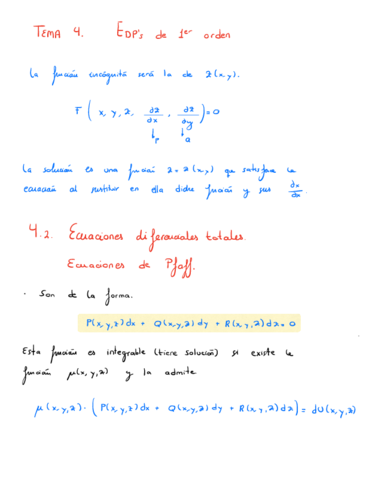 TEMA 4. EDP's de 1er orden
La función incógnita será la de z(x,y).
F ( x, y, z, ∂z/∂x, ∂z/∂y ) = 0
p q
La solución es una función z = z(x,y) que satisface la
ecuación al sustituir en ella dicha función y sus ∂z/∂x
4.2. Ecuaciones diferenciales totales.
Ecuaciones de Pfaff.
· Son de la forma.
P(x,y,z)dx + Q(x,y,z)dy + R(x,y,z)dz = 0
Esta función es integrable (tiene solución) si existe la
función μ(x,y,z) y la admite
μ(x,y,z) · ( P(x,y,z)dx + Q(x,y,z)dy + R(x,y,z)dz ) = dU(x,y,z)